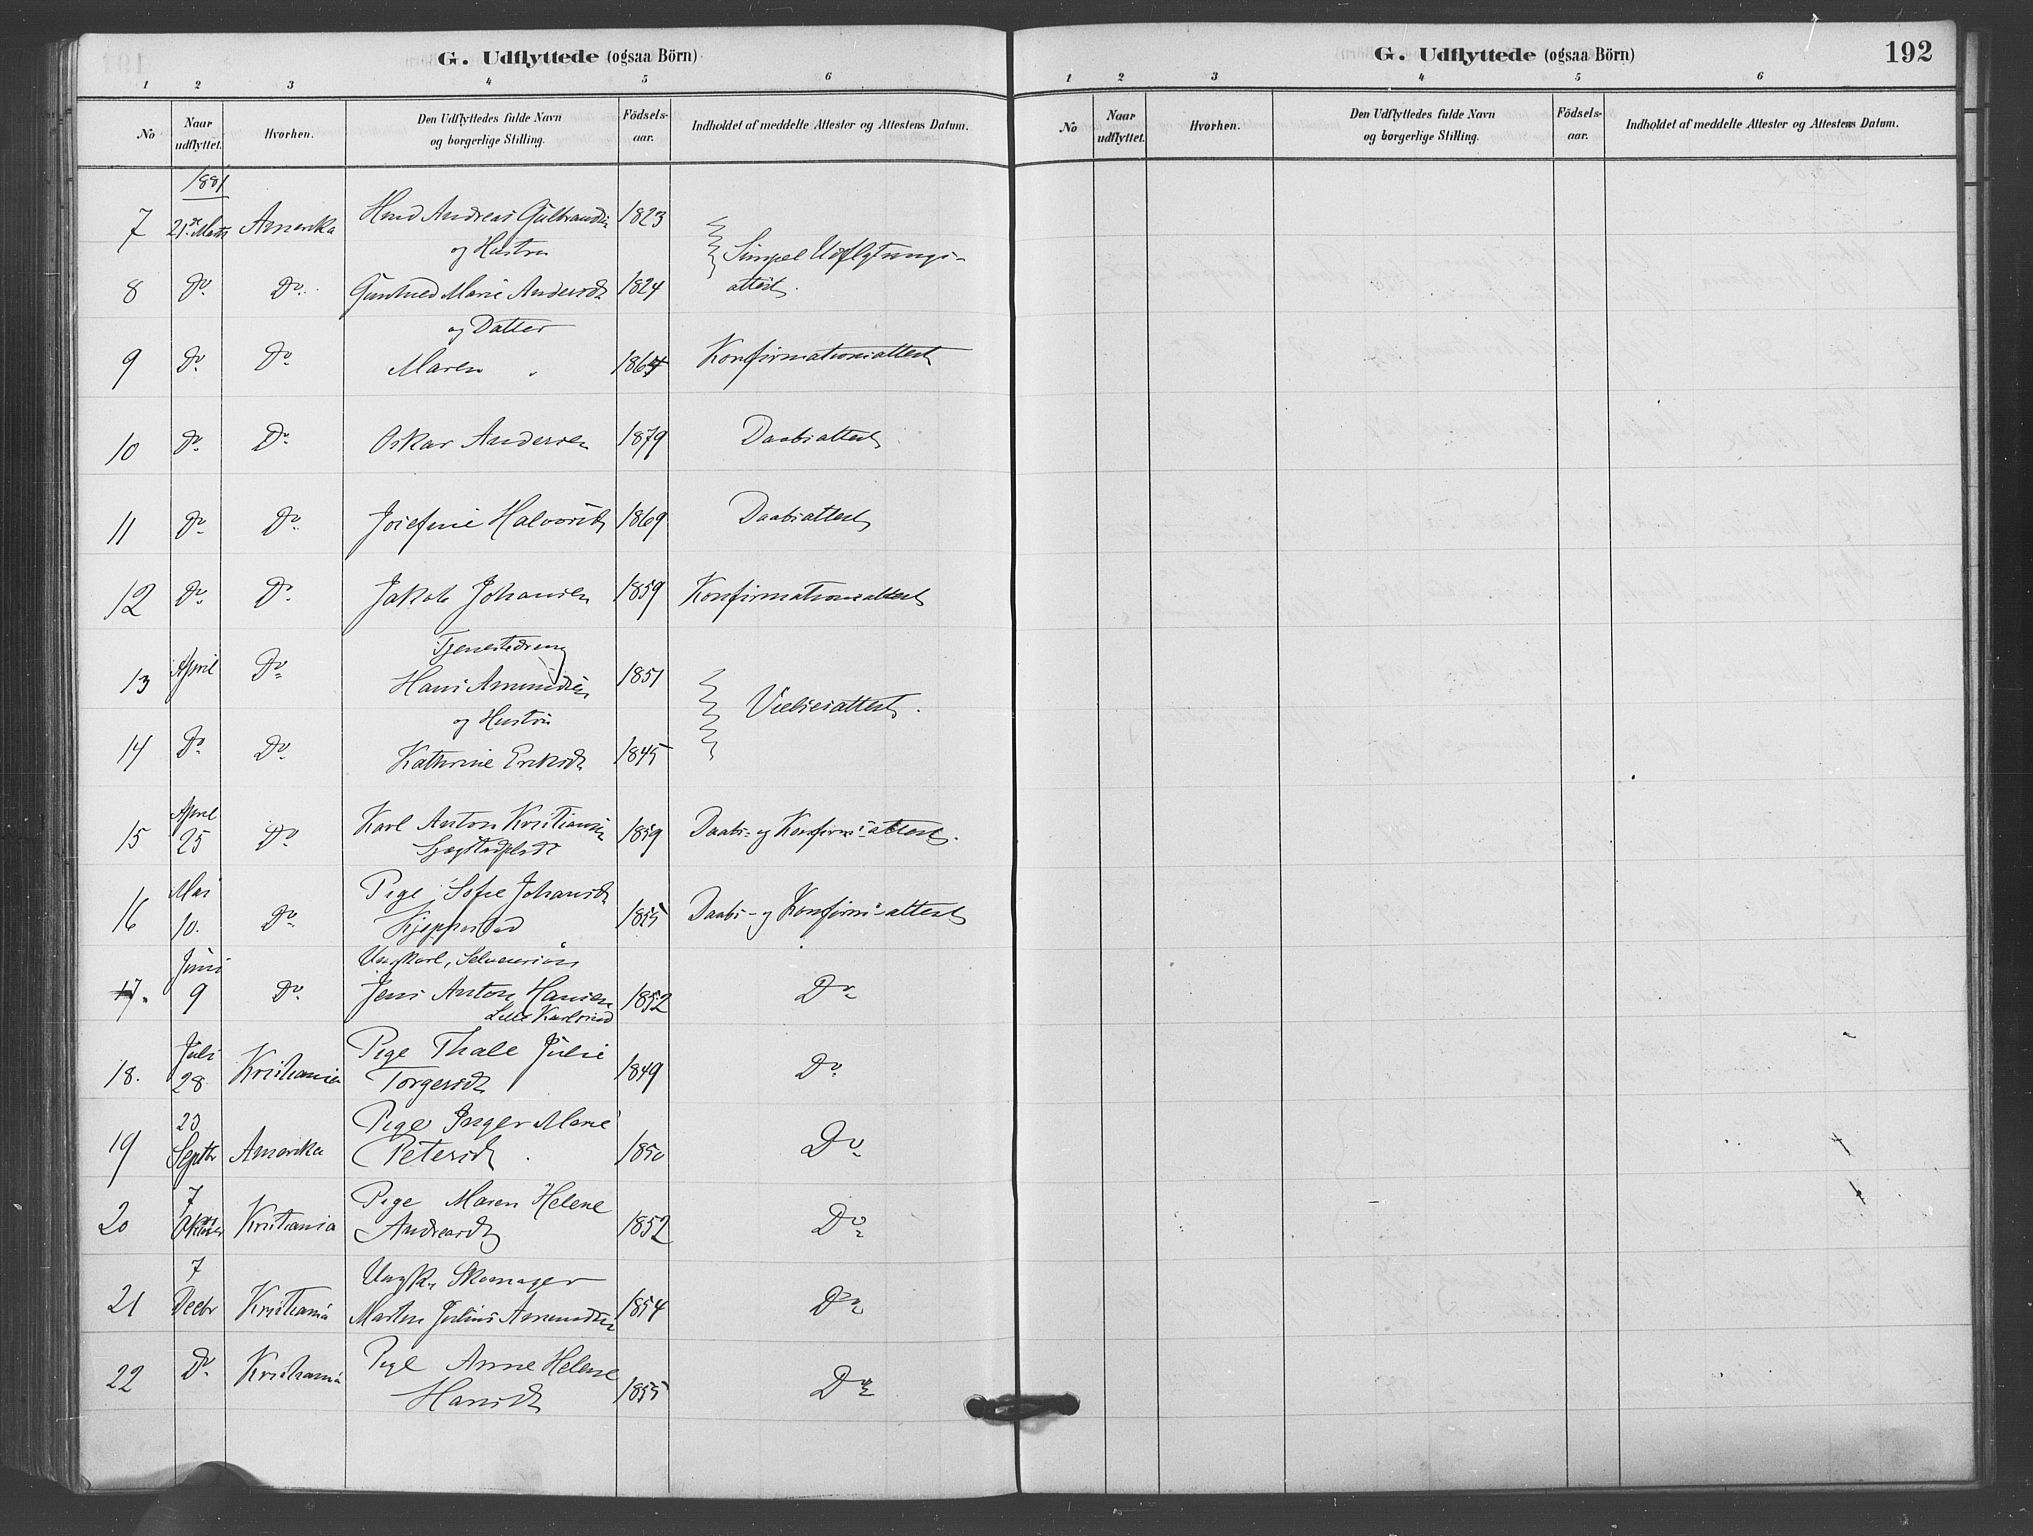 G. Udflyttede (ogsaa Börn)
1 2 3 4 5 6
No Naar udflyttet. Hvorhen. Den Udflyttedes fulde Navn og borgerlige Stilling. Födsels-aar. Indholdet af meddelte Attester og Attestens Datum.
1881
7 21de Marts Amerika Andreas Gulbrandsen 1823
og Hustru Simpel Udflytnings-
8 Do Do Gunhild Marie Andersdt 1824 attest.
og Datter
9 Do Do Maren 1864 Konfirmationsattest
10 Do Do Oskar Andersen 1879 Daabsattest
11 Do Do Josefine Halvorsdt 1869 Daabsattest
12 Do Do Jakob Johansen 1859 Konfirmationsattest
Tjenestedreng
13 April Do Hans Amundsen 1851
og Hustru Vielsesattest.
14 Do Do Kathrine Eriksdt 1845
15 April 25 Do Karl Anton Kristiansen 1859 Daabs- og Konfirms-attest.
16 Mai 10. Do Pige Sofie Johansdt 1855 Daabs- og Konfirms-attest
Kjeppestad
Ungkarl, Selveiersøn
17. Juni 9 Do Jens Anton Hansen 1852 Do
Lille Karlsrud
18. Juli 28 Kristiania Pige Thale Julie 1849 Do
Torgersdt
19 23 Septbr Amerika Pige Inger Marie 1850 Do
Petersdt
20 7 Oktober Kristiania Pige Maren Helene 1852 Do
Andreasdt
21 7 Decbr Kristiania Ungk. Skomager 1854 Do
Martin Julius Amundsen
22 Do Kristiania Pige Anne Helene 1855 Do
Hansdt
G. Udflyttede (ogsaa Börn) 192
1 2 3 4 5 6
No Naar udflyttet. Hvorhen. Den Udflyttedes fulde Navn og borgerlige Stilling. Födsels-aar. Indholdet af meddelte Attester og Attestens Datum.